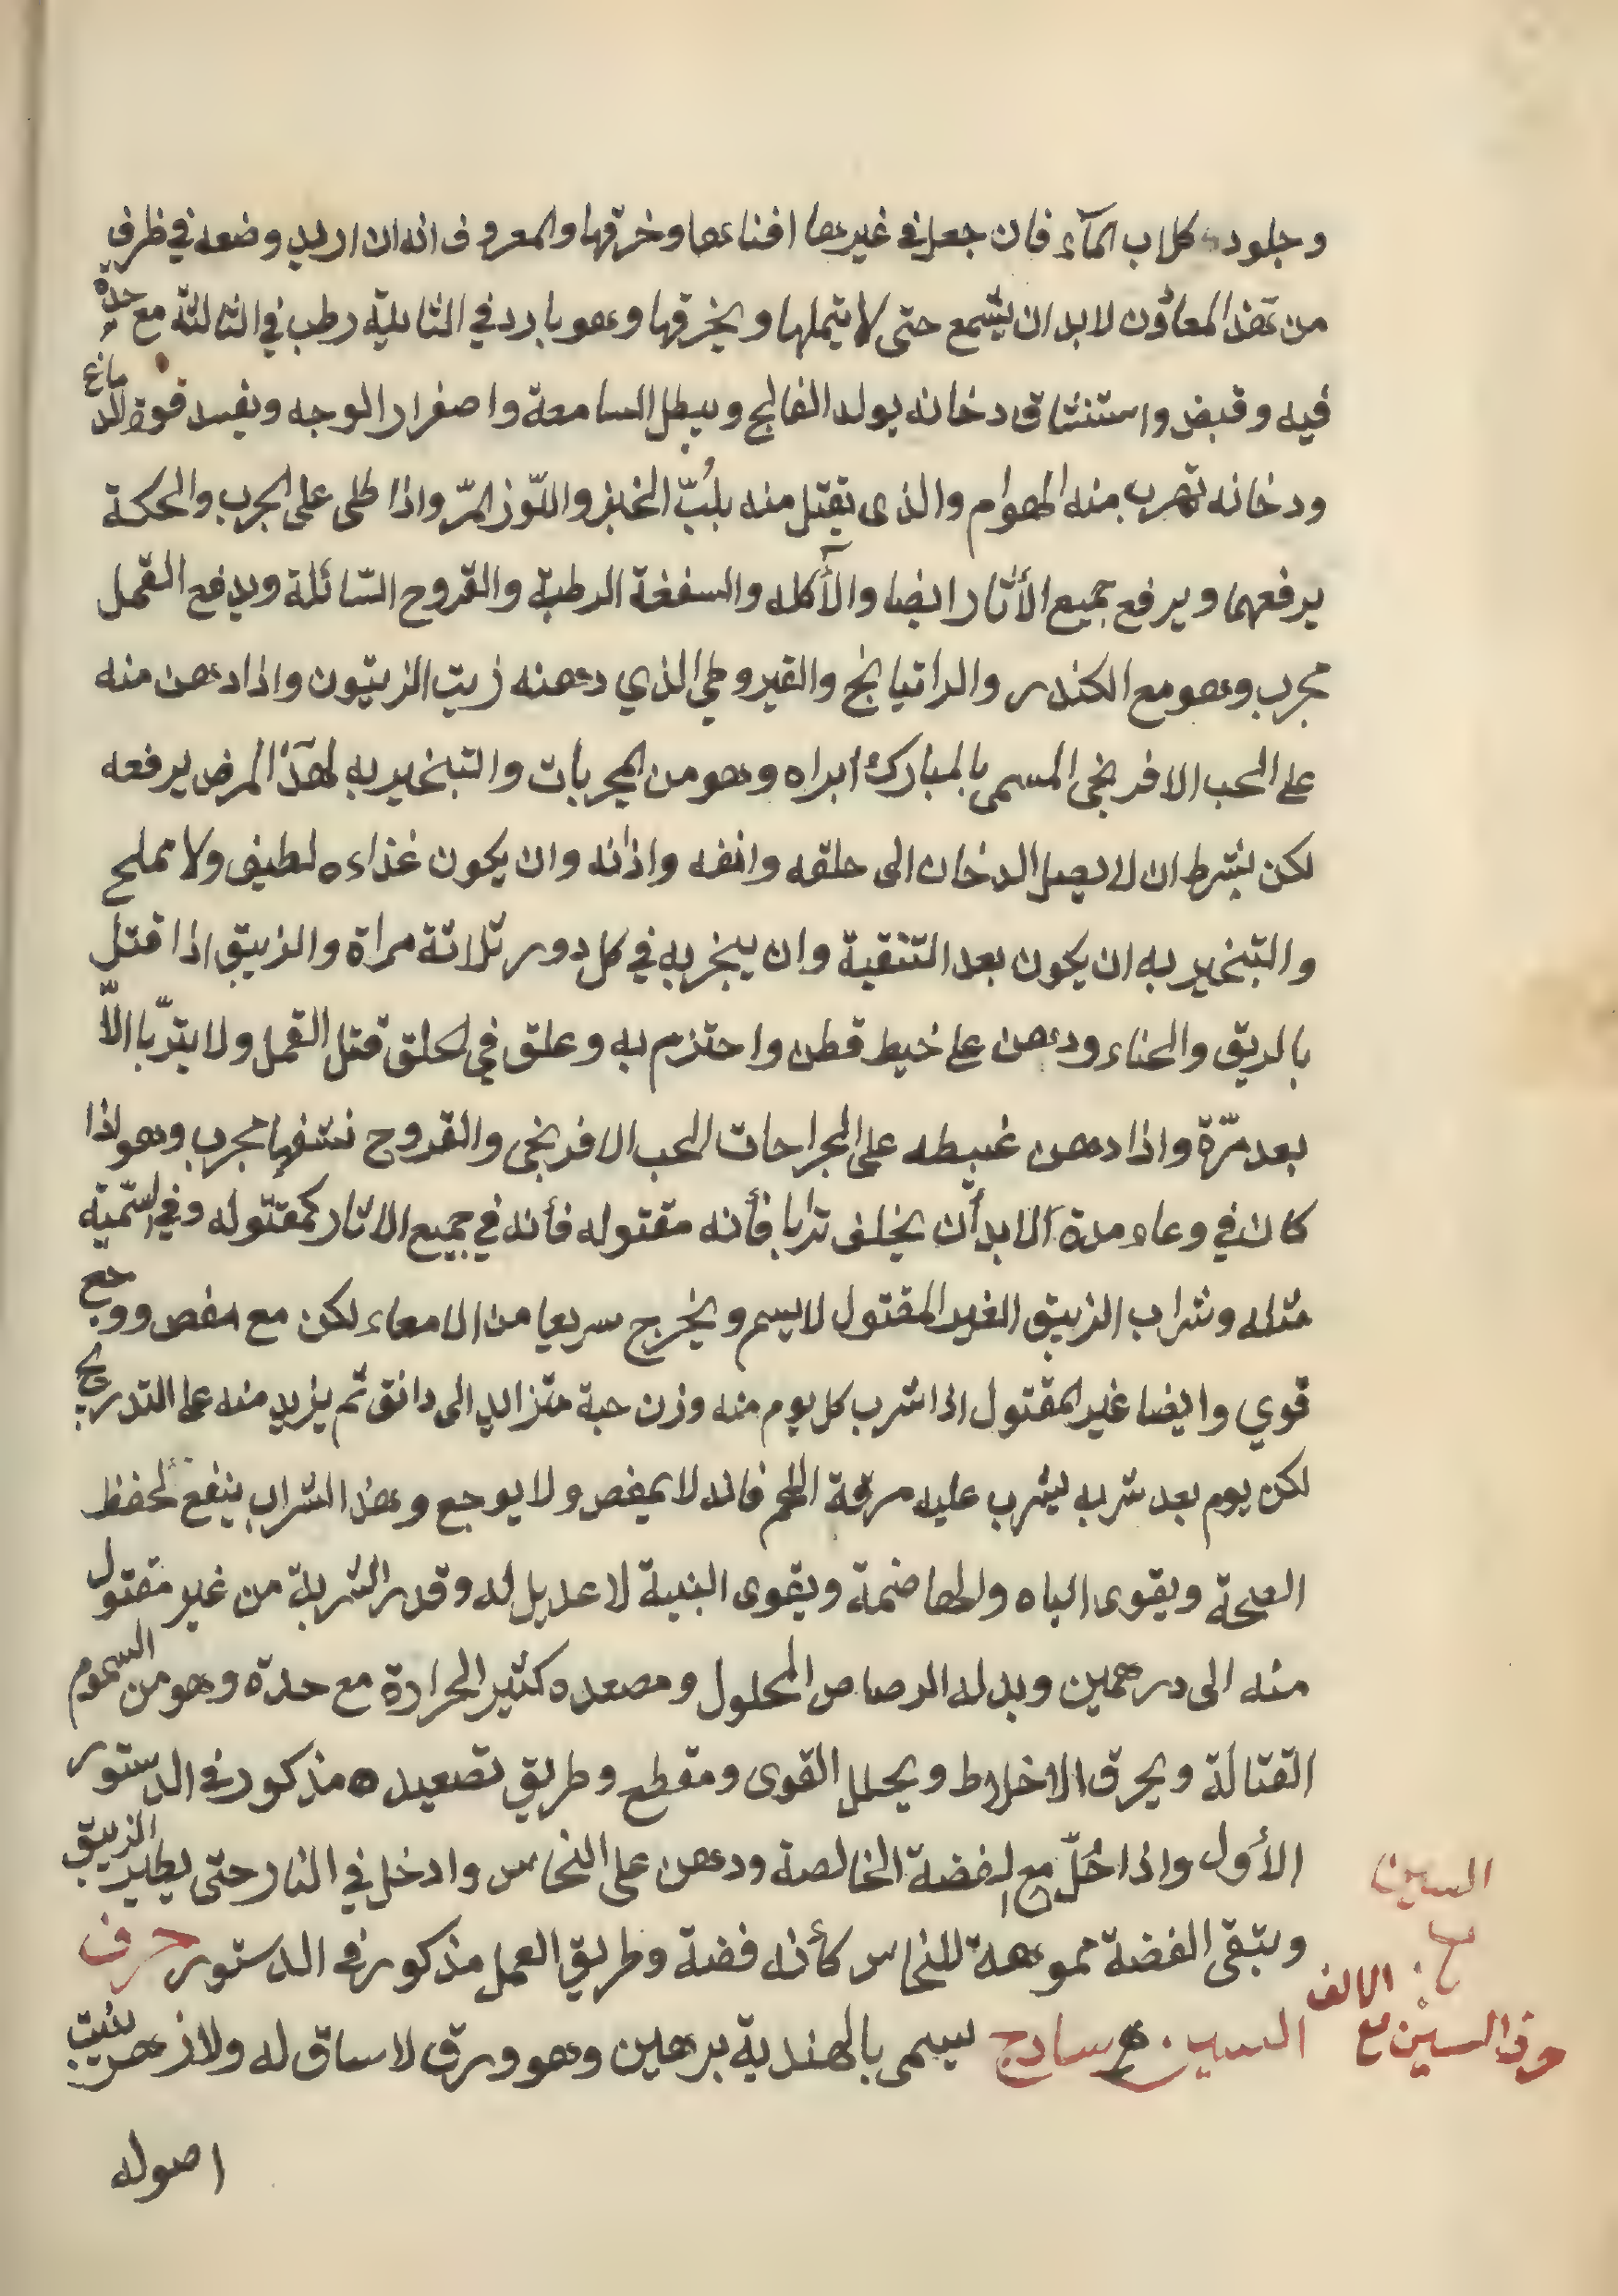 وجلود كلاب المآء فان جعل في غيرها افناءها وخرقها والمعروف انه ان اريد وضعه في ظرف
من هذا المعاون لابد ان يشمع حتى لا يتملها ويخرقها وهو بارد في الثانية رطب في الثالثة مع حدة
فيه وقبض واستنشاق دخانه يولد الفالج ويبطل السامعة واصفرار الوجه ويفسد قوة الدماغ
ودخانه تهرب منه الهوام والذي يقتل منه بلبّ الخبز واللّوز المرّ واذا طلى على الجرب والحكة
يرفعهما ويرفع جميع الأثار ايضا والأكله والسفغة الرطبة والقروح السّائلة ويدفع القمل
مجرب وهو مع الكندر والراتيانج والقيروطي الذي دهنه زيت الزيتون واذا دهن منه
على الحب الافرنجي المسمى بالمبارك ابراه وهو من المجربات والتبخير به لهذا المرض يرفعه
لكن بشرط ان لا يصل الدخان الى حلقه وانفه واذانه وان يكون غذاءه لطيف ولا مملح
والتبخير به ان يكون بعد التنقية وان يبخر به في كل دور ثلاثة مراة والزيبق اذا قتل
بالريق والحناء ودهن على خيط قطن واحتزم به وعلق في الحلق قتل القمل ولا يتربّا الاّ
بعد مرّة واذا دهن غبيطه على الجراحات الحب الافرنجي والقروح نشفها مجرب وهو اذا
كان في وعاء مدة لابد أن يخلف ترابا فأنه مقتوله فأنه في جميع الاثار كمقتوله وفي السّميّة
مثله وشراب الزيبق الغير المقتول لا يسم ويخرج سريعا من الامعاء لكن مع مغص ووجع
قوي وايضا غير المقتول اذا شرب كل يوم منه وزن حبة متزايد الى دانق ثم يزيد منه على التدريج
لكن يوم بعد شربه ليشرب عليه مرقة اللحم فانه لا يمغص ولا يوجع وهذا الشراب ينفع لحفظ
الصحة ويقوى الباه والهاضمة ويقوى البنية لا عديل له وقدر الشربة من غير مقتول
منه الى درهمين وبدله الرصاص المحلول ومصعده كثير الحرارة مع حدة وهو من السموم
القتالة ويحرق الاخلاط ويحلل القوى ومقطع وطريق تصعيده مذكور في الدستور
الأول واذا حُلّ مع الفضة الخالصة ودهن على النحاس وادخل في النار حتى يطير الزيبق
وبتقى الفضة مموهة للنحاس كأنه فضة وطريق العمل مذكور في الدستور حرف
السين سادج يسمى بالهندية برهين وهو ورق لا ساق له ولا زهر ينبت
السين
حرف السين مع الالف
اصوله